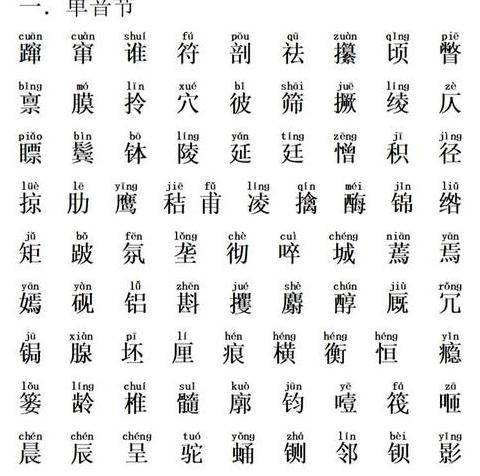 一．单音节
cuān cuàn shuí fú pōu qū zuàn qǐng piē
蹿 窜 谁 符 剖 祛 攥 顷 瞥
bǐng mó līn xué bǐ shāi juē líng zè
禀 膜 拎 穴 彼 筛 撅 绫 仄
piǎo bìn bō líng yán tíng zēng jī jìng
瞟 鬓 钵 陵 延 廷 憎 积 径
lüè lē yīng jiē fǔ líng qín méi jǐn liǔ
掠 肋 鹰 秸 甫 凌 擒 酶 锦 绺
jǔ bǒ fēn lǒng chè cuì chéng niān yān
矩 跛 氛 垄 彻 啐 城 蔫 焉
yān yàn lǚ zhēn jué shè chún jiù rǒng
嫣 砚 铝 斟 攫 麝 醇 厩 冗
jū xiàn pī lí hén héng héng héng yǐn
锔 腺 坯 厘 痕 横 衡 恒 瘾
lǒu líng chuí suǐ kuò jūn yē fá zā
篓 龄 椎 髓 廓 钧 噎 筏 咂
chén chén chéng tuó yǒng zhá lín bèi yǐng
晨 辰 呈 驼 蛹 铡 邻 钡 影